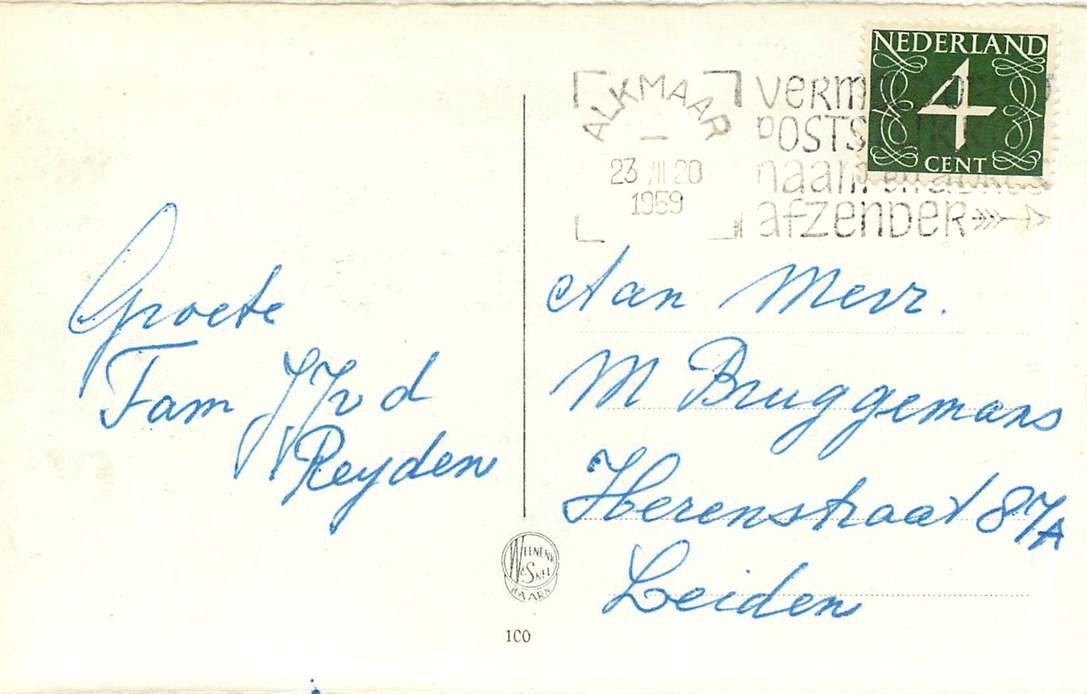 NEDERLAND
4
CENT
ALKMAAR
23 III 20
1959
VERM
POSTS
naam en adres
afzender
Groete
Fam JJ v d
Reyden
Aan Mevr.
M Bruggemans
Herenstraat 87A
Leiden
WEENENK
& SNEL
BAARN
100